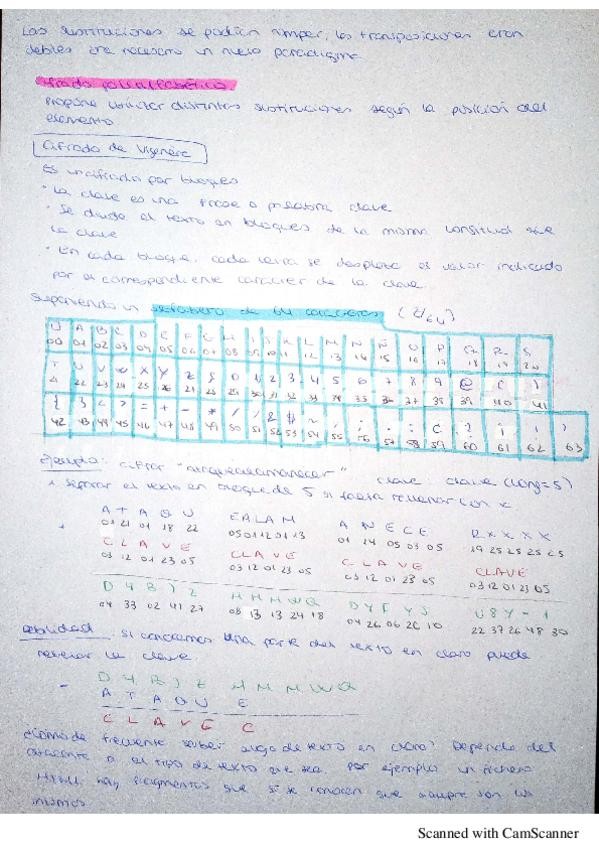 Las sustituciones se podían romper, las transposiciones eran
debiles era necesario un nuevo paradigma
Cifrado polialfabético
Propone utilizar distintas sustituciones según la posición del
elemento
Cifrado de Vigenère
Es un cifrado por bloques
· La clave es una frase o palabra clave
· Se divide el texto en bloques de la misma longitud que
la clave
· En cada bloque, cada letra se desplaza el valor indicado
por el correspondiente caracter de la clave.
Suponiendo un alfabeto de 64 caracteres (Z/64)
A B C D E F G H I J K L M N Ñ O P Q R S
00 01 02 03 04 05 06 07 08 09 10 11 12 13 14 15 16 17 18 19 20
T U V W X Y Z 0 1 2 3 4 5 6 7 8 9 @ ( )
21 22 23 24 25 26 27 28 29 30 31 32 33 34 35 36 37 38 39 40 41
{ } < > = + - * / & $
42 43 44 45 46 47 48 49 50 51 52 53 54 55 56 57 58 59 60 61 62 63
Ejemplo: cifrar "ataquealamanecer" clave: clave (long=5)
Separar el texto en bloque de 5 si falta rellenar con x
A T A Q U E A L A M A N E C E R X X X X
01 21 01 18 22 05 01 12 01 13 01 14 05 03 05 19 25 25 25 25
C L A V E C L A V E C L A V E C L A V E
03 12 01 23 05 03 12 01 23 05 03 12 01 23 05 03 12 01 23 05
D 4 B ) Z H M M W Q D Y F Y J U 8 Y - 1
04 33 02 41 27 08 13 13 24 18 04 26 06 26 10 22 37 26 48 30
Debilidad: si conocemos una parte del texto en claro puede
revelar la clave.
D 4 B ) Z H M M W Q
- A T A Q U E
C L A V E C
¿Cómo de frecuente saber algo de texto en claro? Depende del
atacante o el tipo de texto que sea. Por ejemplo un fichero
HTML hay fragmentos que si se conocen que siempre son los
mismos
Scanned with CamScanner